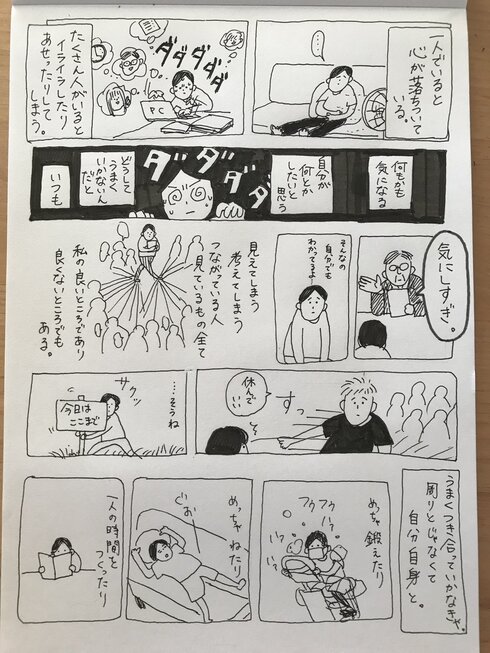 一人でいると
心が落ちついて
いる。
・・・
ダダダダダ
PC
たくさん人がいると
イライラしたり
あせったりして
しまう。
何もかも
気になる
自分が
何とか
したいと
思う
ダダダダ
どうして
うまく
いかないん
だと
いつも
気にしすぎ。
そんなの
自分でも
わかってるよ
見えてしまう
考えてしまう
つながっている人
見ているもの全て
私の良いところであり
良くないところでも
ある。
すっ
休んで
いい
……そうね
サクッ
今日は
ここまで
うまくつき合っていかなきゃ。
周りとじゃなくて
自分自身と。
めっちゃ鍛えたり
フウ
フウ
めっちゃねたり
ぐおー
一人の時間を
つくったり